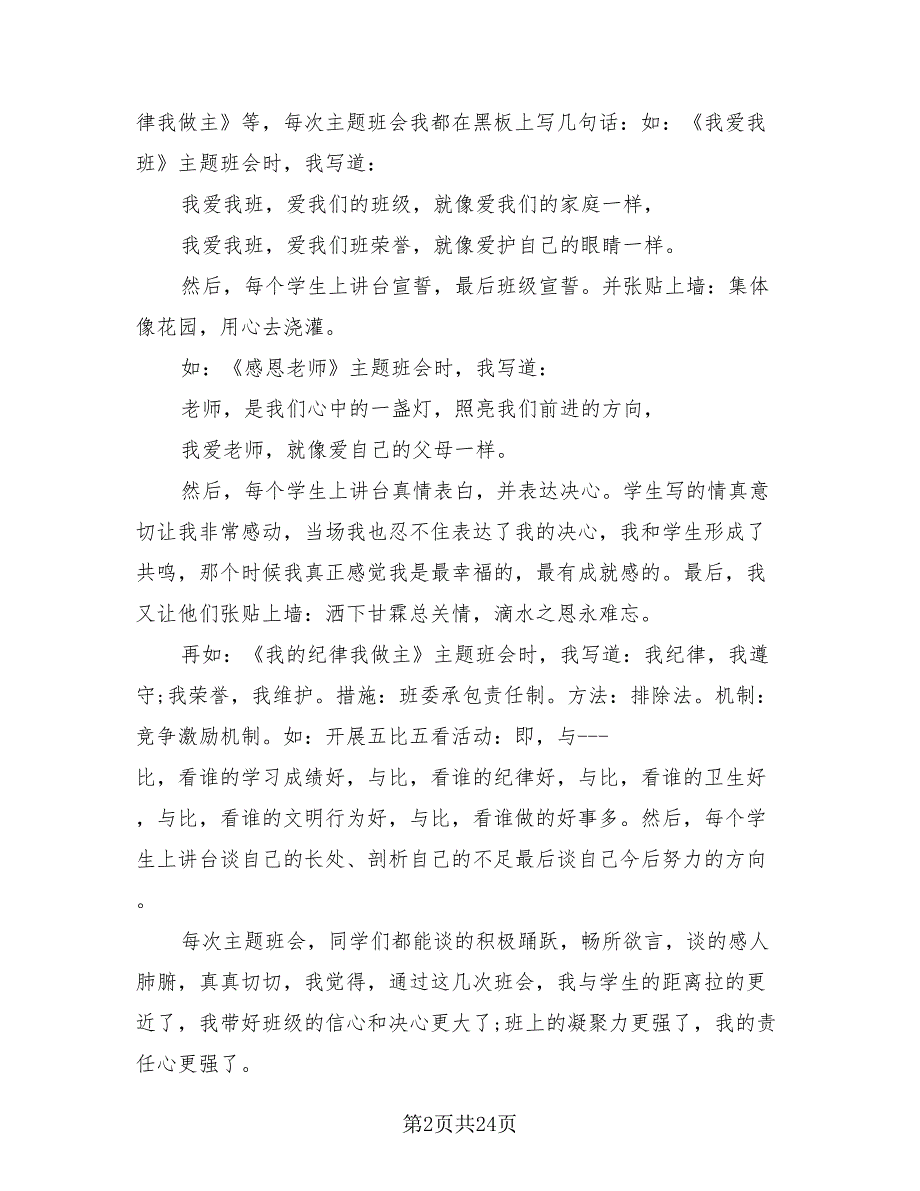 律我做主》等，每次主题班会我都在黑板上写几句话：如：《我爱我
班》主题班会时，我写道：
我爱我班，爱我们的班级，就像爱我们的家庭一样，
我爱我班，爱我们班荣誉，就像爱护自己的眼睛一样。
然后，每个学生上讲台宣誓，最后班级宣誓。并张贴上墙：集体
像花园，用心去浇灌。
如：《感恩老师》主题班会时，我写道：
老师，是我们心中的一盏灯，照亮我们前进的方向，
我爱老师，就像爱自己的父母一样。
然后，每个学生上讲台真情表白，并表达决心。学生写的情真意
切让我非常感动，当场我也忍不住表达了我的决心，我和学生形成了
共鸣，那个时候我真正感觉我是最幸福的，最有成就感的。最后，我
又让他们张贴上墙：洒下甘霖总关情，滴水之恩永难忘。
再如：《我的纪律我做主》主题班会时，我写道：我纪律，我遵
守;我荣誉，我维护。措施：班委承包责任制。方法：排除法。机制：
竞争激励机制。如：开展五比五看活动：即，与---
比，看谁的学习成绩好，与比，看谁的纪律好，与比，看谁的卫生好
，与比，看谁的文明行为好，与比，看谁做的好事多。然后，每个学
生上讲台谈自己的长处、剖析自己的不足最后谈自己今后努力的方向
。
每次主题班会，同学们都能谈的积极踊跃，畅所欲言，谈的感人
肺腑，真真切切，我觉得，通过这几次班会，我与学生的距离拉的更
近了，我带好班级的信心和决心更大了;班上的凝聚力更强了，我的责
任心更强了。
第2页共24页